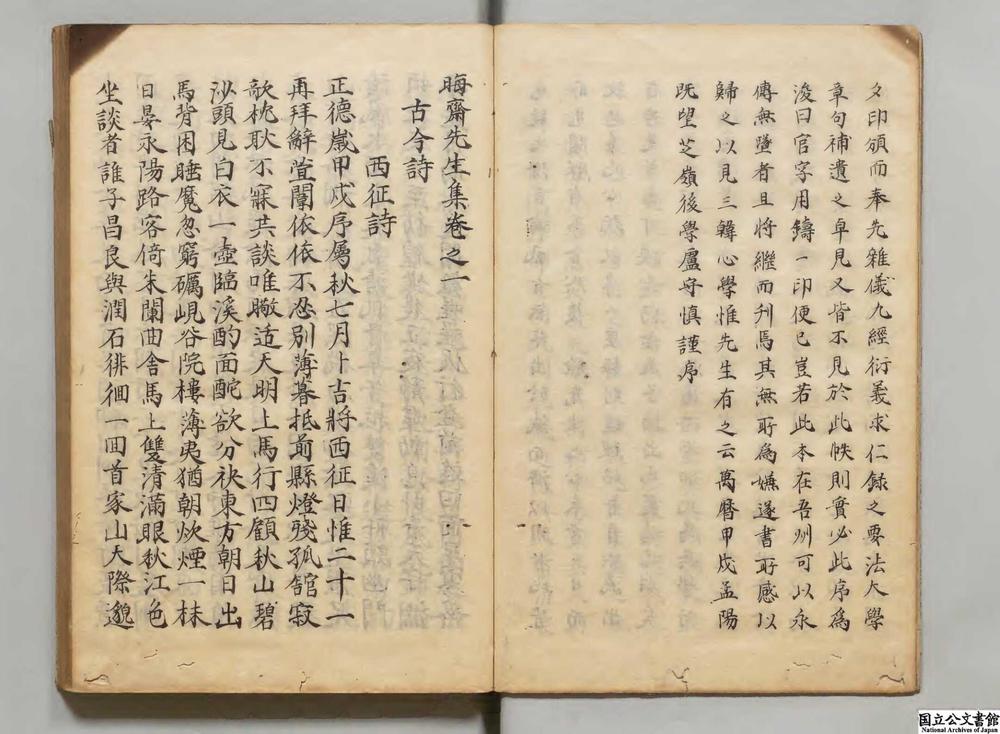 夕印頒而奉先雜儀九經衍義求仁錄之要法大學
章句補遺之卓見又皆不見於此帙則實必此序爲
後曰官字用鑄一印便已豈若此本在吾州可以永
傳無墜者且將繼而刋焉其無所爲嫌遂書所感以
歸之以見三韓心學惟先生有之云萬曆甲戌孟陽
旣望芝嶺後學盧守愼謹序
晦齋先生集卷之一
古今詩
西征詩
正德嵗甲戌序屬秋七月卜吉將西征日惟二十一
再拜辭萱闈依依不忍別薄暮抵前縣燈殘孤舘寂
欹枕耿不寐共談唯瞰适天明上馬行四顧秋山碧
沙頭見白衣一壺臨溪酌面酡欲分袂東方朝日出
馬背困睡魔忽窮礪峴谷院樓薄夷猶朝炊煙一抹
日晏永陽路客倚朱闌曲舍馬上雙清滿眼秋江色
坐談者誰子昌良與潤石徘徊一回首家山天際邈
国立公文書館
National Archives of Japan